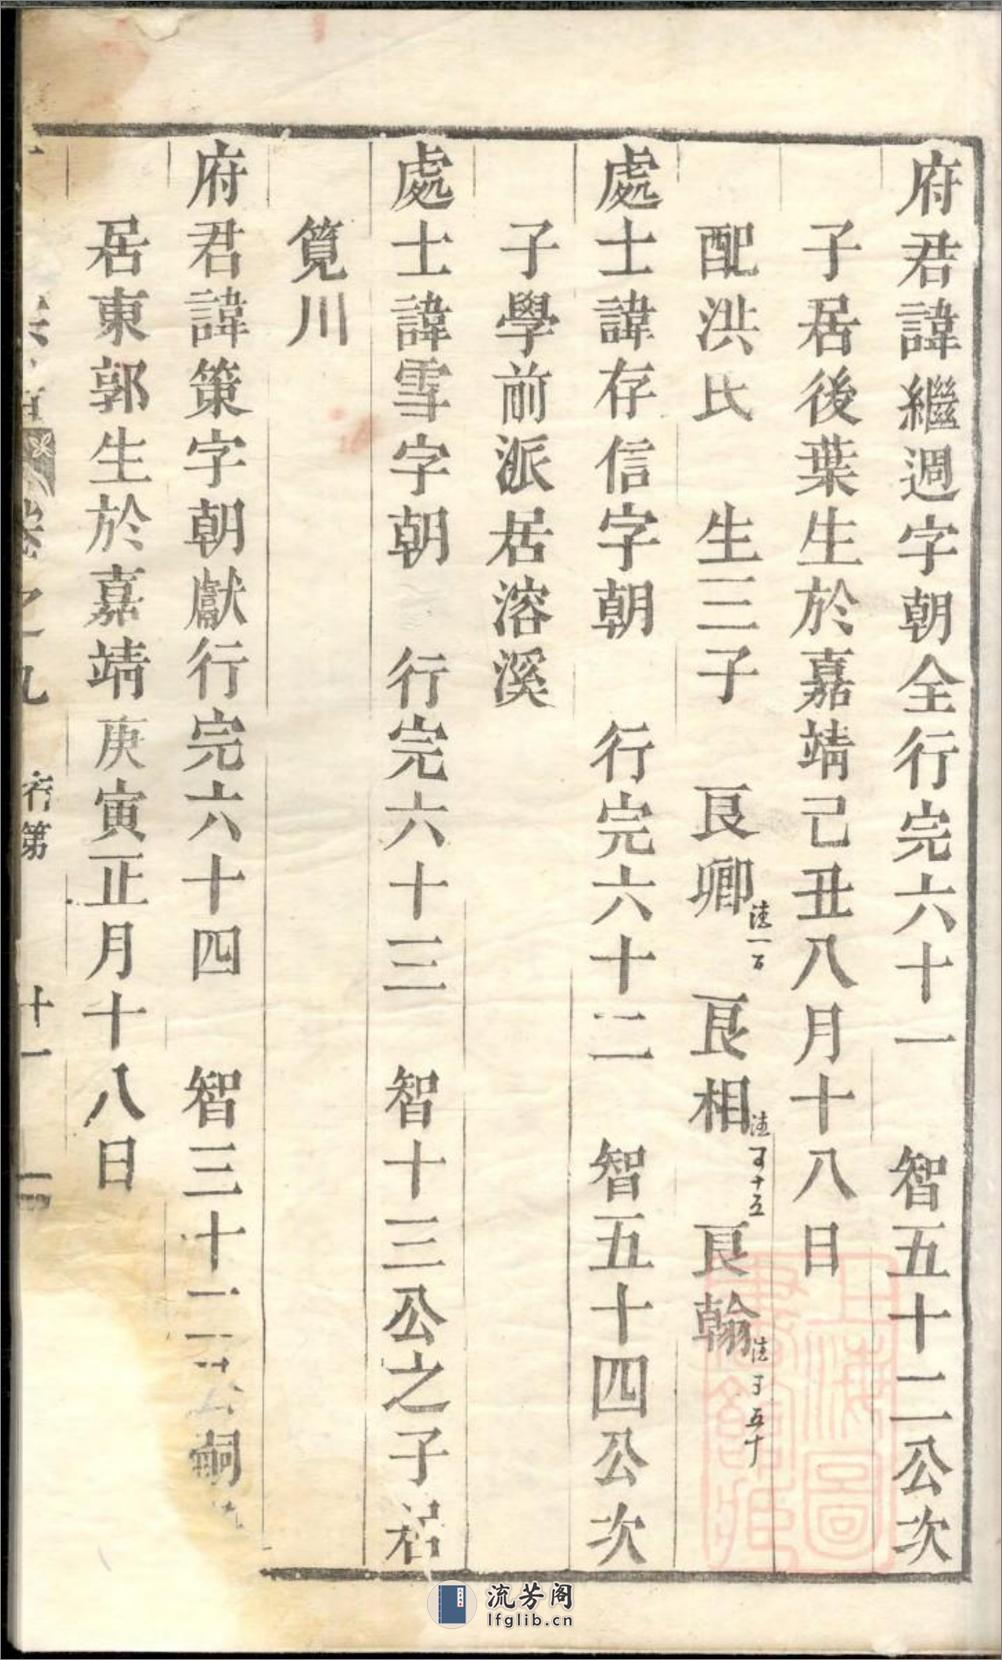 府君諱繼週字朝全行完六十一　智五十二公次
子居後葉生於嘉靖己丑八月十八日
配洪氏　生三子　良卿　良相　良翰
處士諱存信字朝　行完六十二　智五十四公次
子學前派居溶溪
處士諱雪字朝　行完六十三　智十三公之子居
筧川
府君諱策字朝獻行完六十四　智三十二公嗣
居東郭生於嘉靖庚寅正月十八日
卷之九　第　十一
上海圖書館藏
流芳阁
lfglib.cn